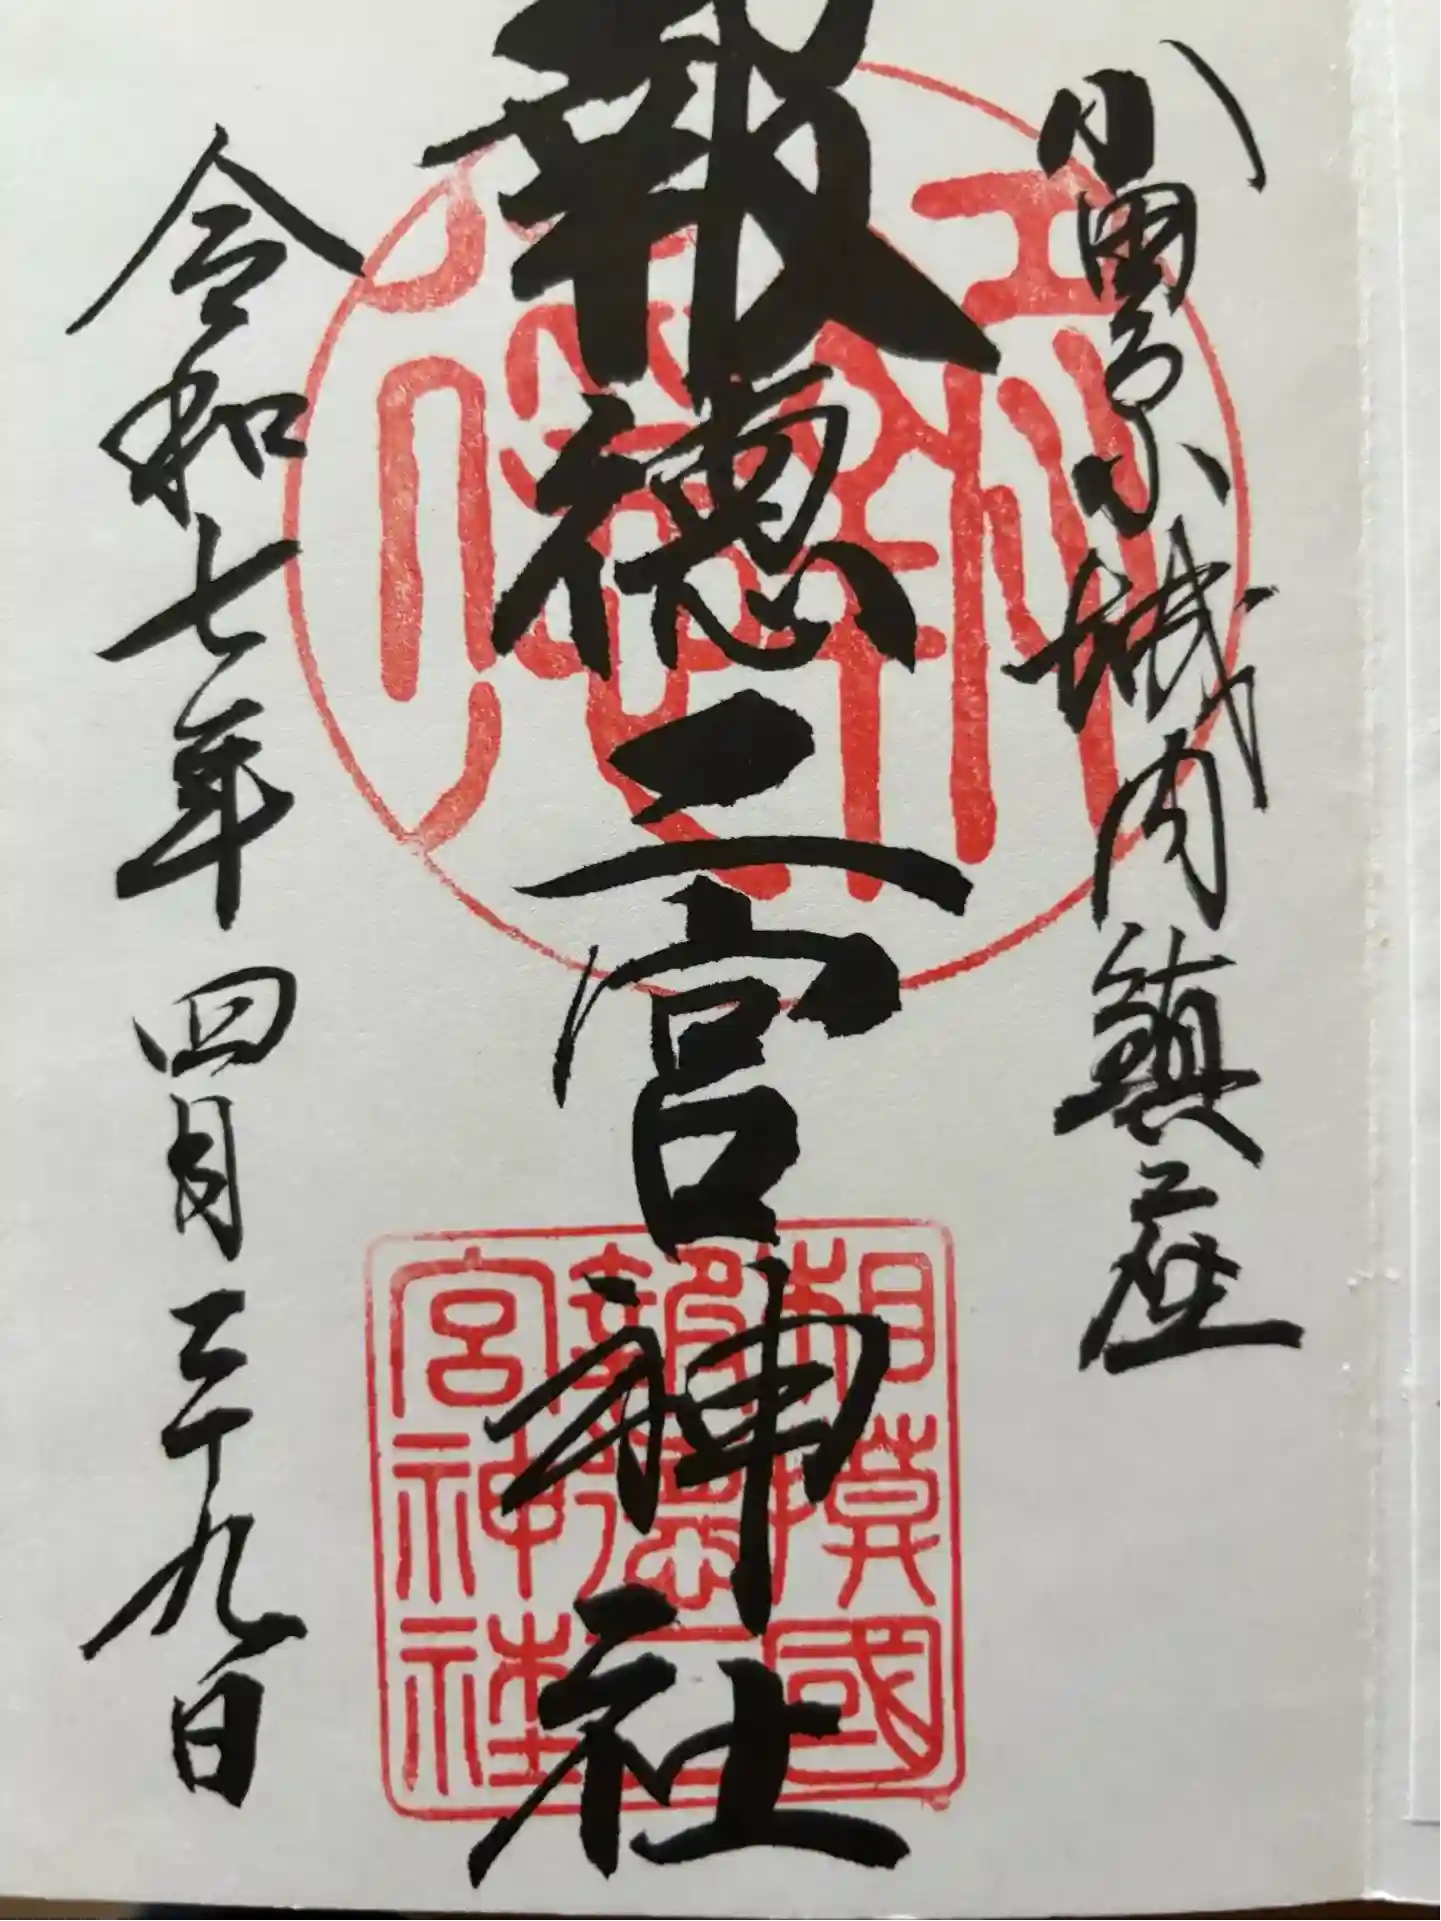 小田原城内鎮座
報徳二宮神社
令和七年四月二十九日
相模國
報徳二
宮神社